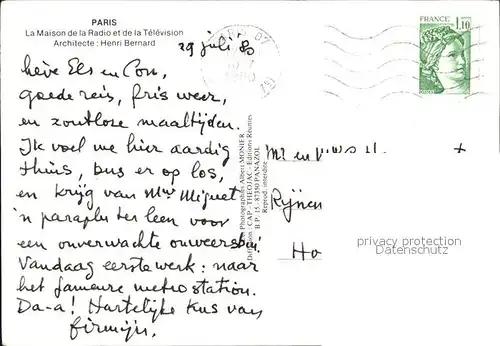 PARIS
La Maison de la Radio et de la Télévision
Architecte : Henri Bernard
29 juli 80
lieve Els en Con,
goede reis, fris weer,
en zoutloze maaltijden.
Ik voel me hier aardig
thuis, bus er op los,
en krijg van Mme Miguet
'n paraplu ter leen voor
een onverwachte onweersbui.
Vandaag eerste werk: naar
het fameuze metrostation.
Da-a! Hartelijke Kus van
firmijn.
Photographies Albert MONIER
Diffusion : CAP - THEOJAC - Editions Réunies
B.P. 15 - 87350 PANAZOL
Reprod. interdite
FRANCE
1,10
Rijnen
Ho
privacy protection
Datenschutz